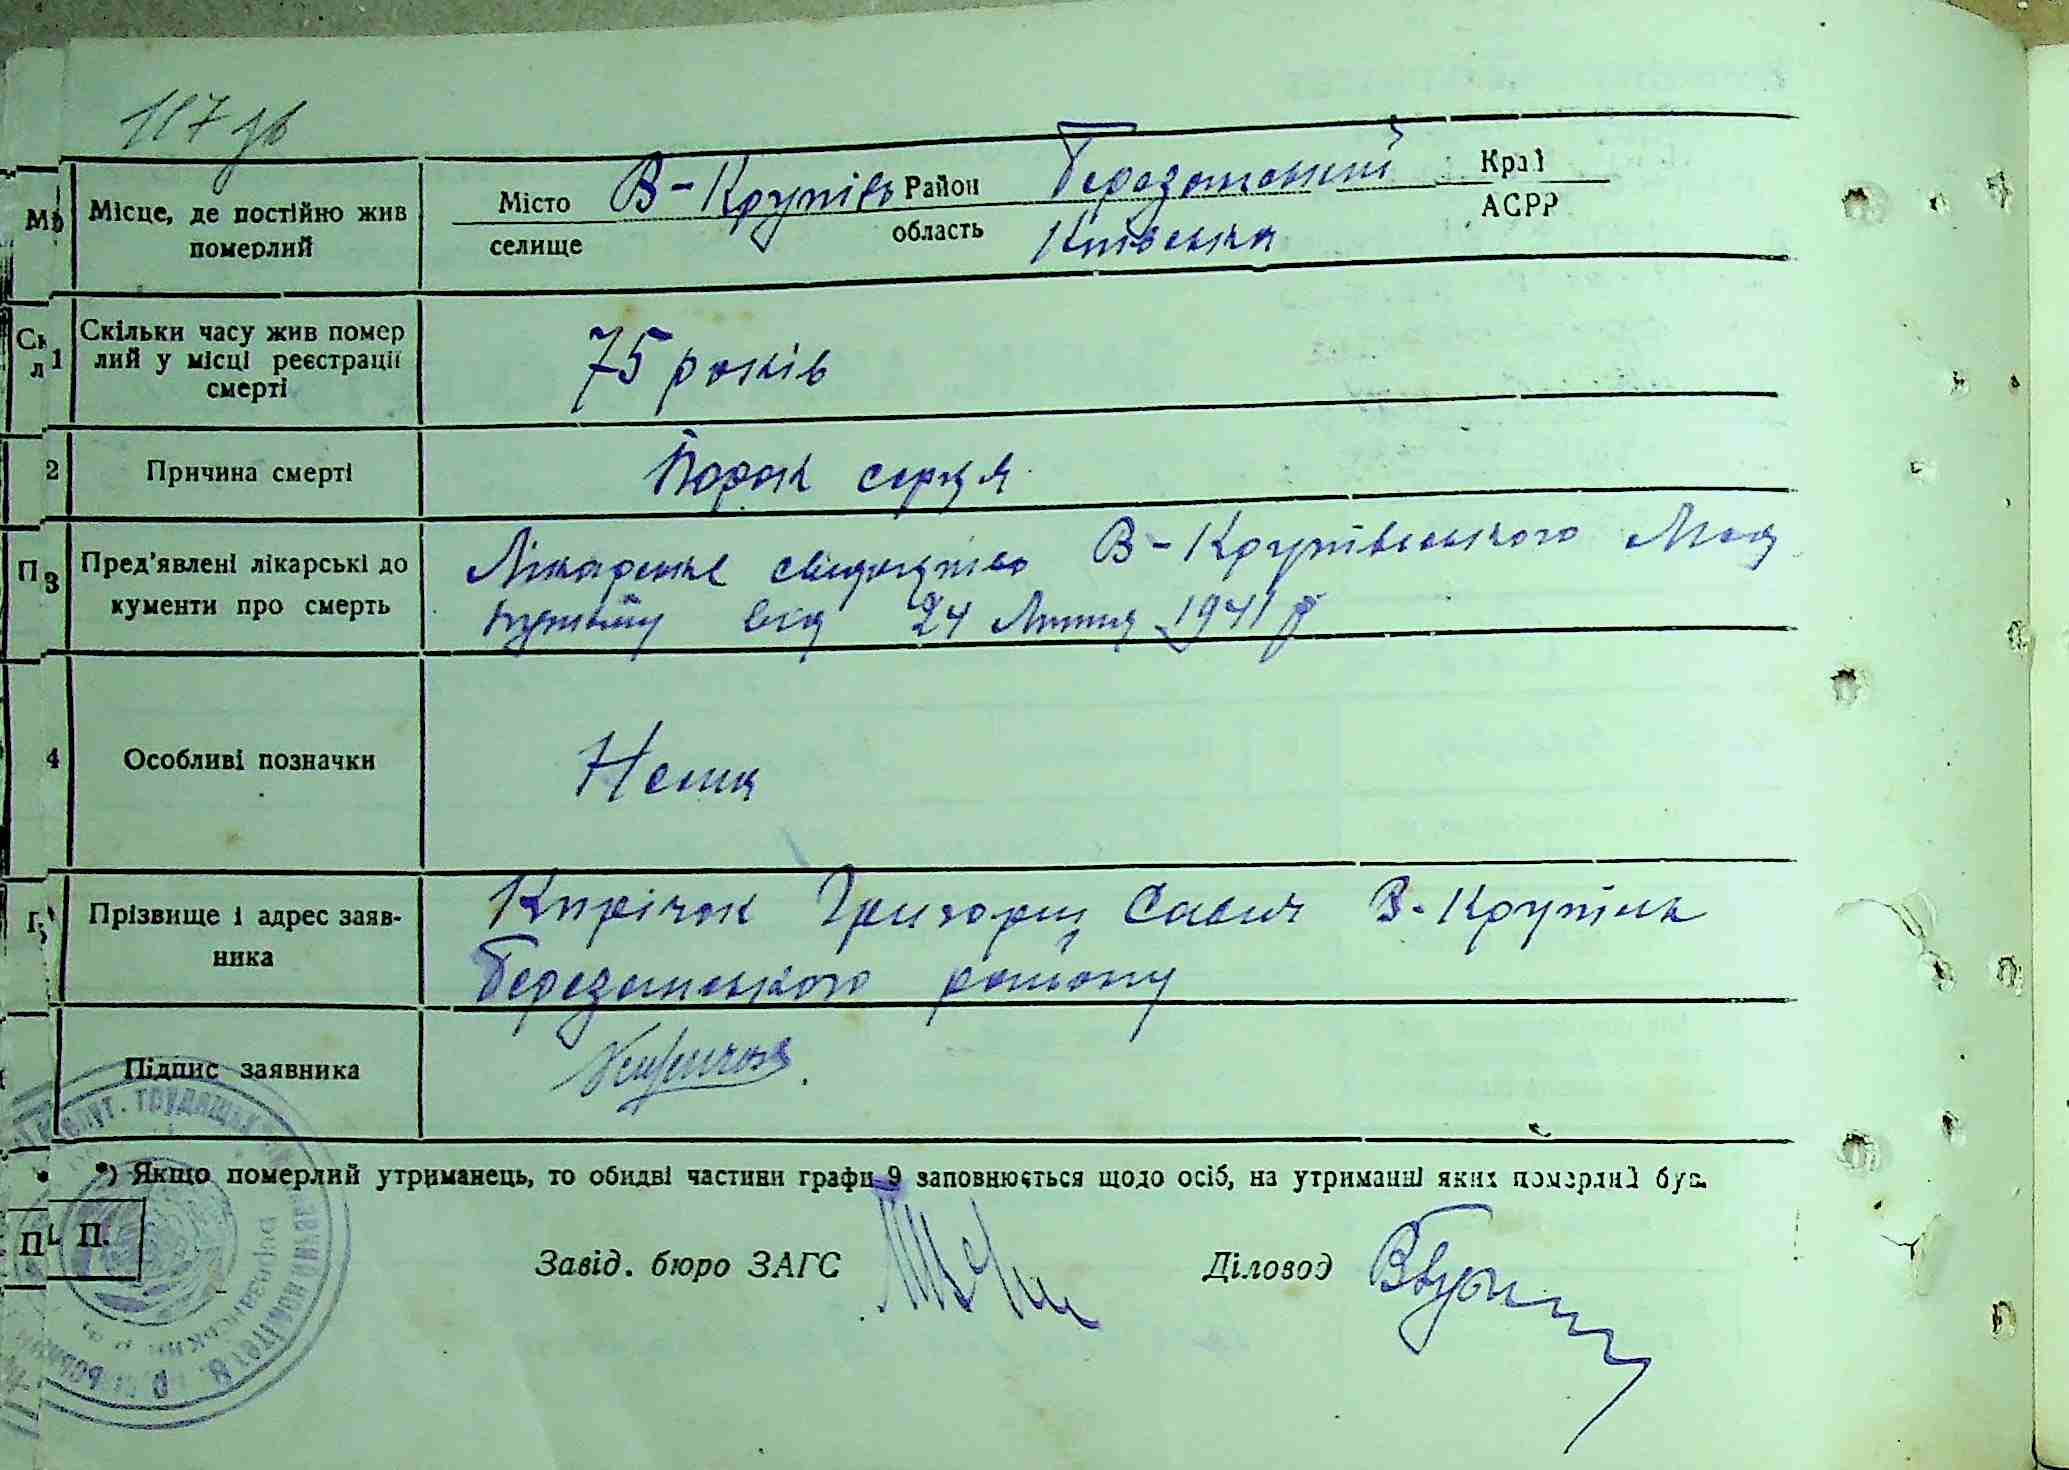 117 зв
Місце, де постійно жив
померлий
Місто В-Крупіль Район Березанський Край
селище область Київська АСРР
1 Скільки часу жив помер
лий у місці реєстрації
смерті
75 років
2 Причина смерті
Порок серця
3 Пред'явлені лікарські до
кументи про смерть
Лікарське свидоцтво В-Крупільського Мед
пункту від 24 Липня 1941 р
4 Особливі позначки
Нема
Прізвище і адрес заяв-
ника
Кирічок Григорій Савич В-Крупіль
Березанського району
Підпис заявника
Кіричок
*) Якщо померлий утриманець, то обидві частини графи 9 заповнюється щодо осіб, на утриманні яких померлий був.
П.
Завід. бюро ЗАГС
Діловод